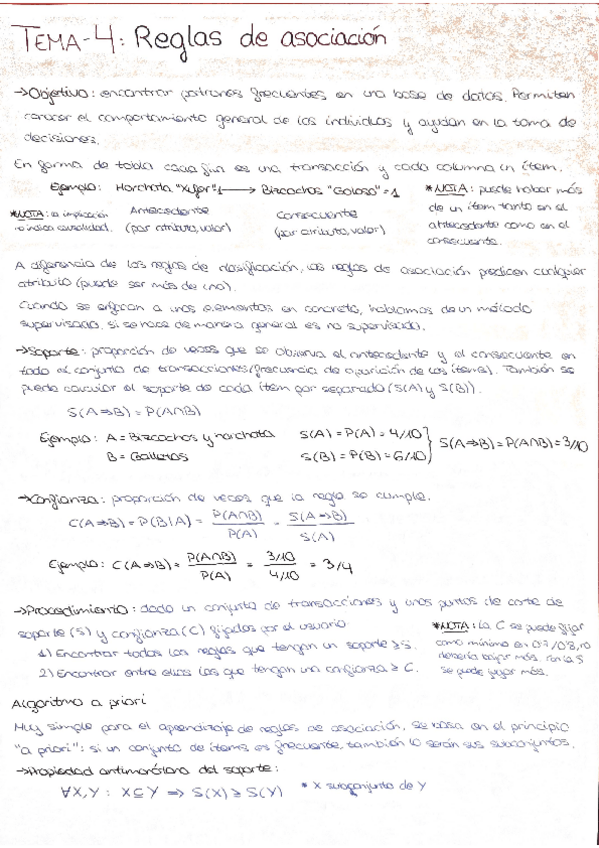 TEMA-4: Reglas de asociación
→Objetivo: encontrar patrones frecuentes en una base de datos. Permiten
conocer el comportamiento general de los individuos y ayudan en la toma de
decisiones.
En forma de tabla cada fila es una transacción y cada columna un ítem.
Ejemplo: Horchata "Xufer"=1 → Bizcochos "Goloso"=1
*NOTA: la implicación
no indica causalidad.
Antecedente
(par atributo, valor)
Consecuente
(par atributo, valor)
*NOTA: puede haber más
de un ítem tanto en el
antecedente como en el
consecuente.
A diferencia de las reglas de clasificación, las reglas de asociación predicen cualquier
atributo (puede ser más de uno).
Cuando se enfocan a unos elementos en concreto, hablamos de un método
supervisado, si se hace de manera general es no supervisado.
→Soporte: proporción de veces que se observa el antecedente y el consecuente en
todo el conjunto de transacciones (frecuencia de aparición de los ítems). También se
puede calcular el soporte de cada ítem por separado (S(A) y S(B)).
S(A⇒B) = P(A∩B)
Ejemplo: A = Bizcochos y horchata S(A) = P(A) = 4/10
B = Galletas S(B) = P(B) = 6/10 } S(A⇒B) = P(A∩B) = 3/10
→Confianza: proporción de veces que la regla se cumple.
C(A⇒B) = P(B|A) = P(A∩B)/P(A) = S(A⇒B)/S(A)
Ejemplo: C(A⇒B) = P(A∩B)/P(A) = 3/10 / 4/10 = 3/4
→Procedimiento: dado un conjunto de transacciones y unos puntos de corte de
soporte (S) y confianza (C) fijados por el usuario:
1) Encontrar todas las reglas que tengan un soporte ≥ S.
2) Encontrar entre ellas las que tengan una confianza ≥ C.
*NOTA: La C se puede fijar
como mínimo en 0.7/0.8, no
debería bajar más. Con la S
se puede jugar más.
Algoritmo a priori
Muy simple para el aprendizaje de reglas de asociación, se basa en el principio
"a priori": si un conjunto de ítems es frecuente, también lo serán sus subconjuntos.
→Propiedad antimonótona del soporte:
∀X,Y : X⊆Y ⇒ S(X) ≥ S(Y) * X subconjunto de Y